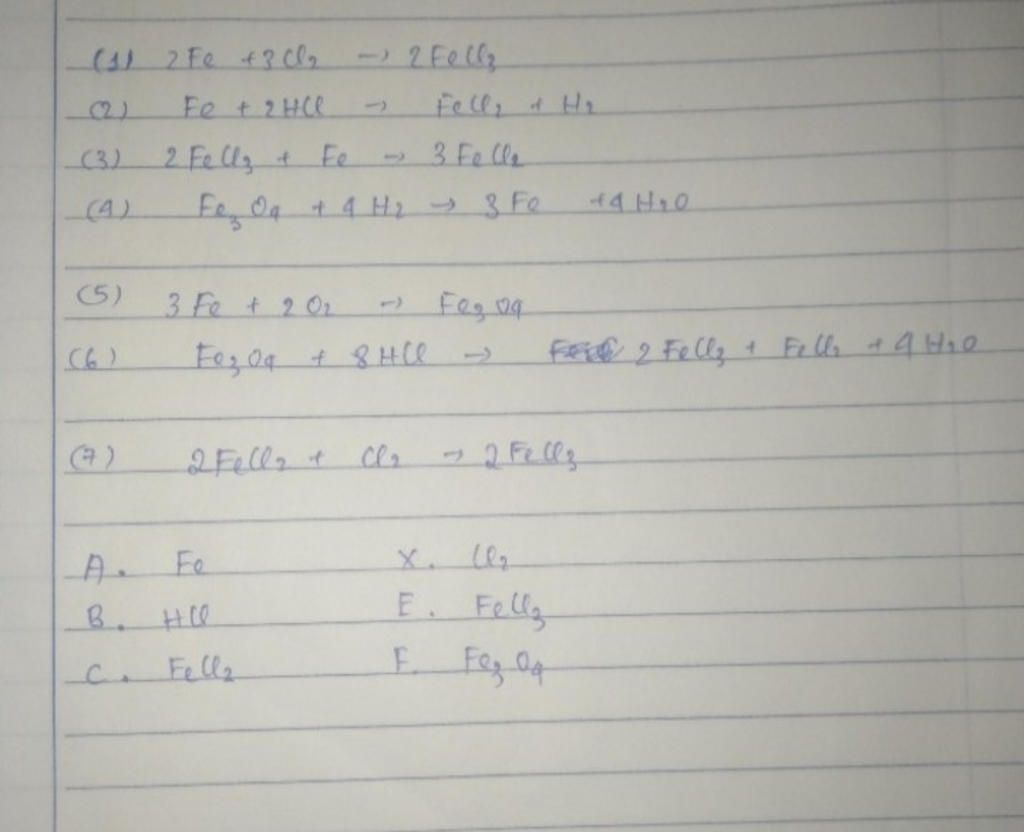 (1) 2Fe + 3Cl₂ → 2FeCl₃
(2) Fe + 2HCl → FeCl₂ + H₂
(3) 2FeCl₃ + Fe → 3FeCl₂
(4) Fe₃O₄ + 4H₂ → 3Fe + 4H₂O
(5) 3Fe + 2O₂ → Fe₃O₄
(6) Fe₃O₄ + 8HCl → 2FeCl₃ + FeCl₂ + 4H₂O
(7) 2FeCl₂ + Cl₂ → 2FeCl₃
A. Fe X. Cl₂
B. HCl E. FeCl₃
C. FeCl₂ F. Fe₃O₄